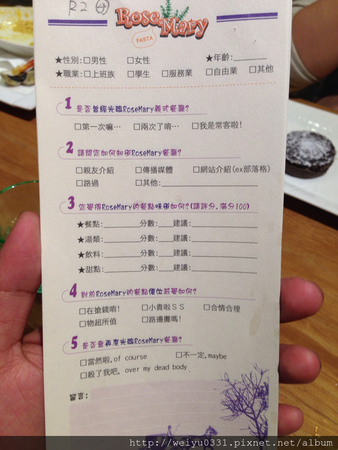 R2→
RoseMary
PASTA
★性別:□男性 □女性 ★年齡:
★職業:□上班族 □學生 □服務業 □自由業 □其他
1 是否曾經光臨RoseMary義式餐廳?
□第一次嘛… □兩次了唷… □我是常客啦!
2 請問您如何知道RoseMary餐廳?
□親友介紹 □傳播媒體 □網站介紹(ex部落格)
□路過 □其他:
3 您覺得RoseMary的餐點味道如何?(請評分,滿分100)
★餐點: 分數: 建議:
★湯類: 分數: 建議:
★飲料: 分數: 建議:
★甜點: 分數: 建議:
4 對於RoseMary的餐點價位感覺如何?
□在搶錢唷! □小貴啦SS □合情合理
□物超所值 □路邊攤嗎!
5 是否會再度光臨RoseMary餐廳?
□當然啦,of course □不一定,maybe
□殺了我吧, over my dead body
留言:
http://weiyu0331.pixnet.net/album